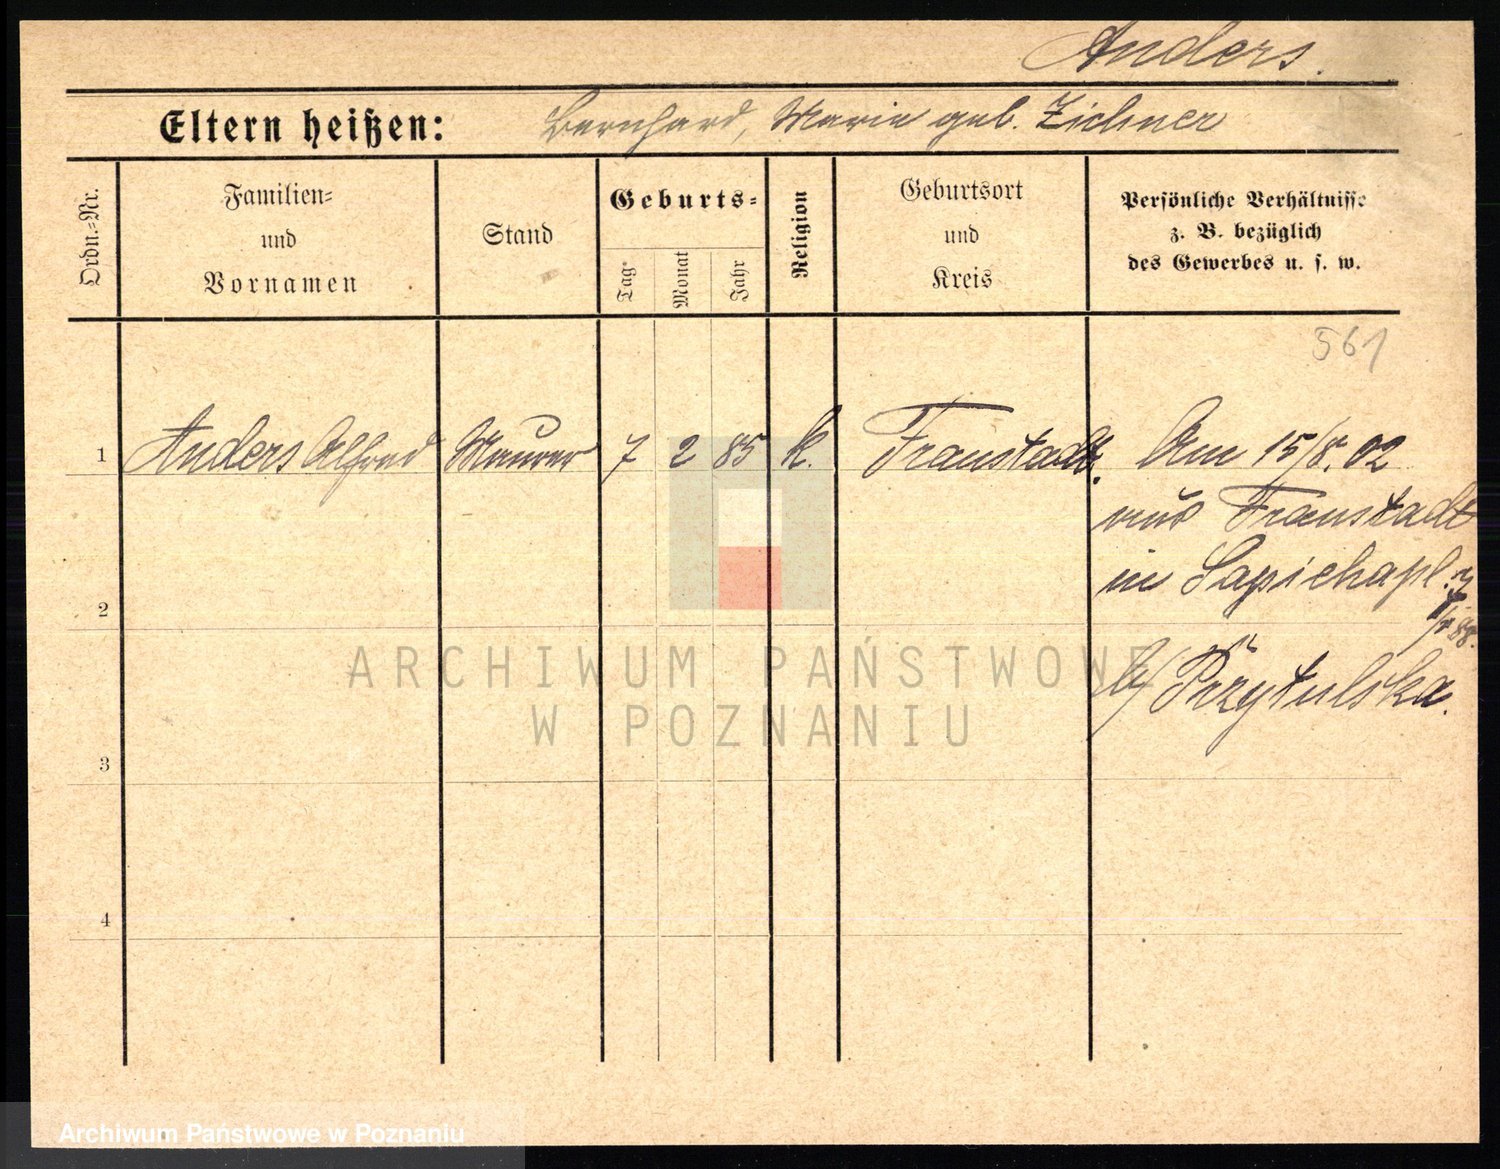 Anders.
Eltern heißen: Bernhard, Marie geb. Zichner
Ordn.=Nr.
Familien=
und
Vornamen
Stand
Geburts=
Tag
Monat
Jahr
Religion
Geburtsort
und
Kreis
Persönliche Verhältnisse
z. B. bezüglich
des Gewerbes u. s. w.
561
1 Anders Alfred Maurer 7 2 85 k. Fraustadt. Am 15/8. 02
aus Fraustadt
in Sapiehapl.
2
b/ Przytulska.
3
4
ARCHIWUM PAŃSTWOWE
W POZNANIU
Archiwum Państwowe w Poznaniu